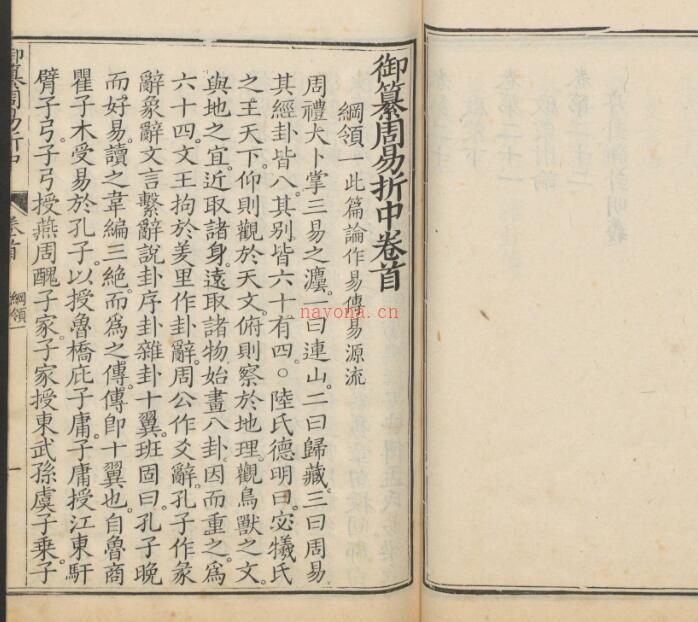 御纂周易折中卷首
綱領一此篇論作易傳易源流
周禮大卜掌三易之灋一曰連山二曰歸藏三曰周易
其經卦皆八其别皆六十有四○陸氏德明曰宓犧氏
之王天下仰則觀於天文俯則察於地理觀鳥獸之文
與地之宜近取諸身遠取諸物始畫八卦因而重之爲
六十四文王拘於羑里作卦辭周公作爻辭孔子作彖
辭象辭文言繫辭說卦序卦雜卦十翼班固曰孔子晚
而好易讀之韋編三絶而爲之傳傳卽十翼也自魯商
瞿子木受易於孔子以授魯橋庇子庸子庸授江東馯
臂子弓子弓授燕周醜子家子家授東武孫虞子乘子
御纂周易折中
卷首
綱領一
一
nayona.cn